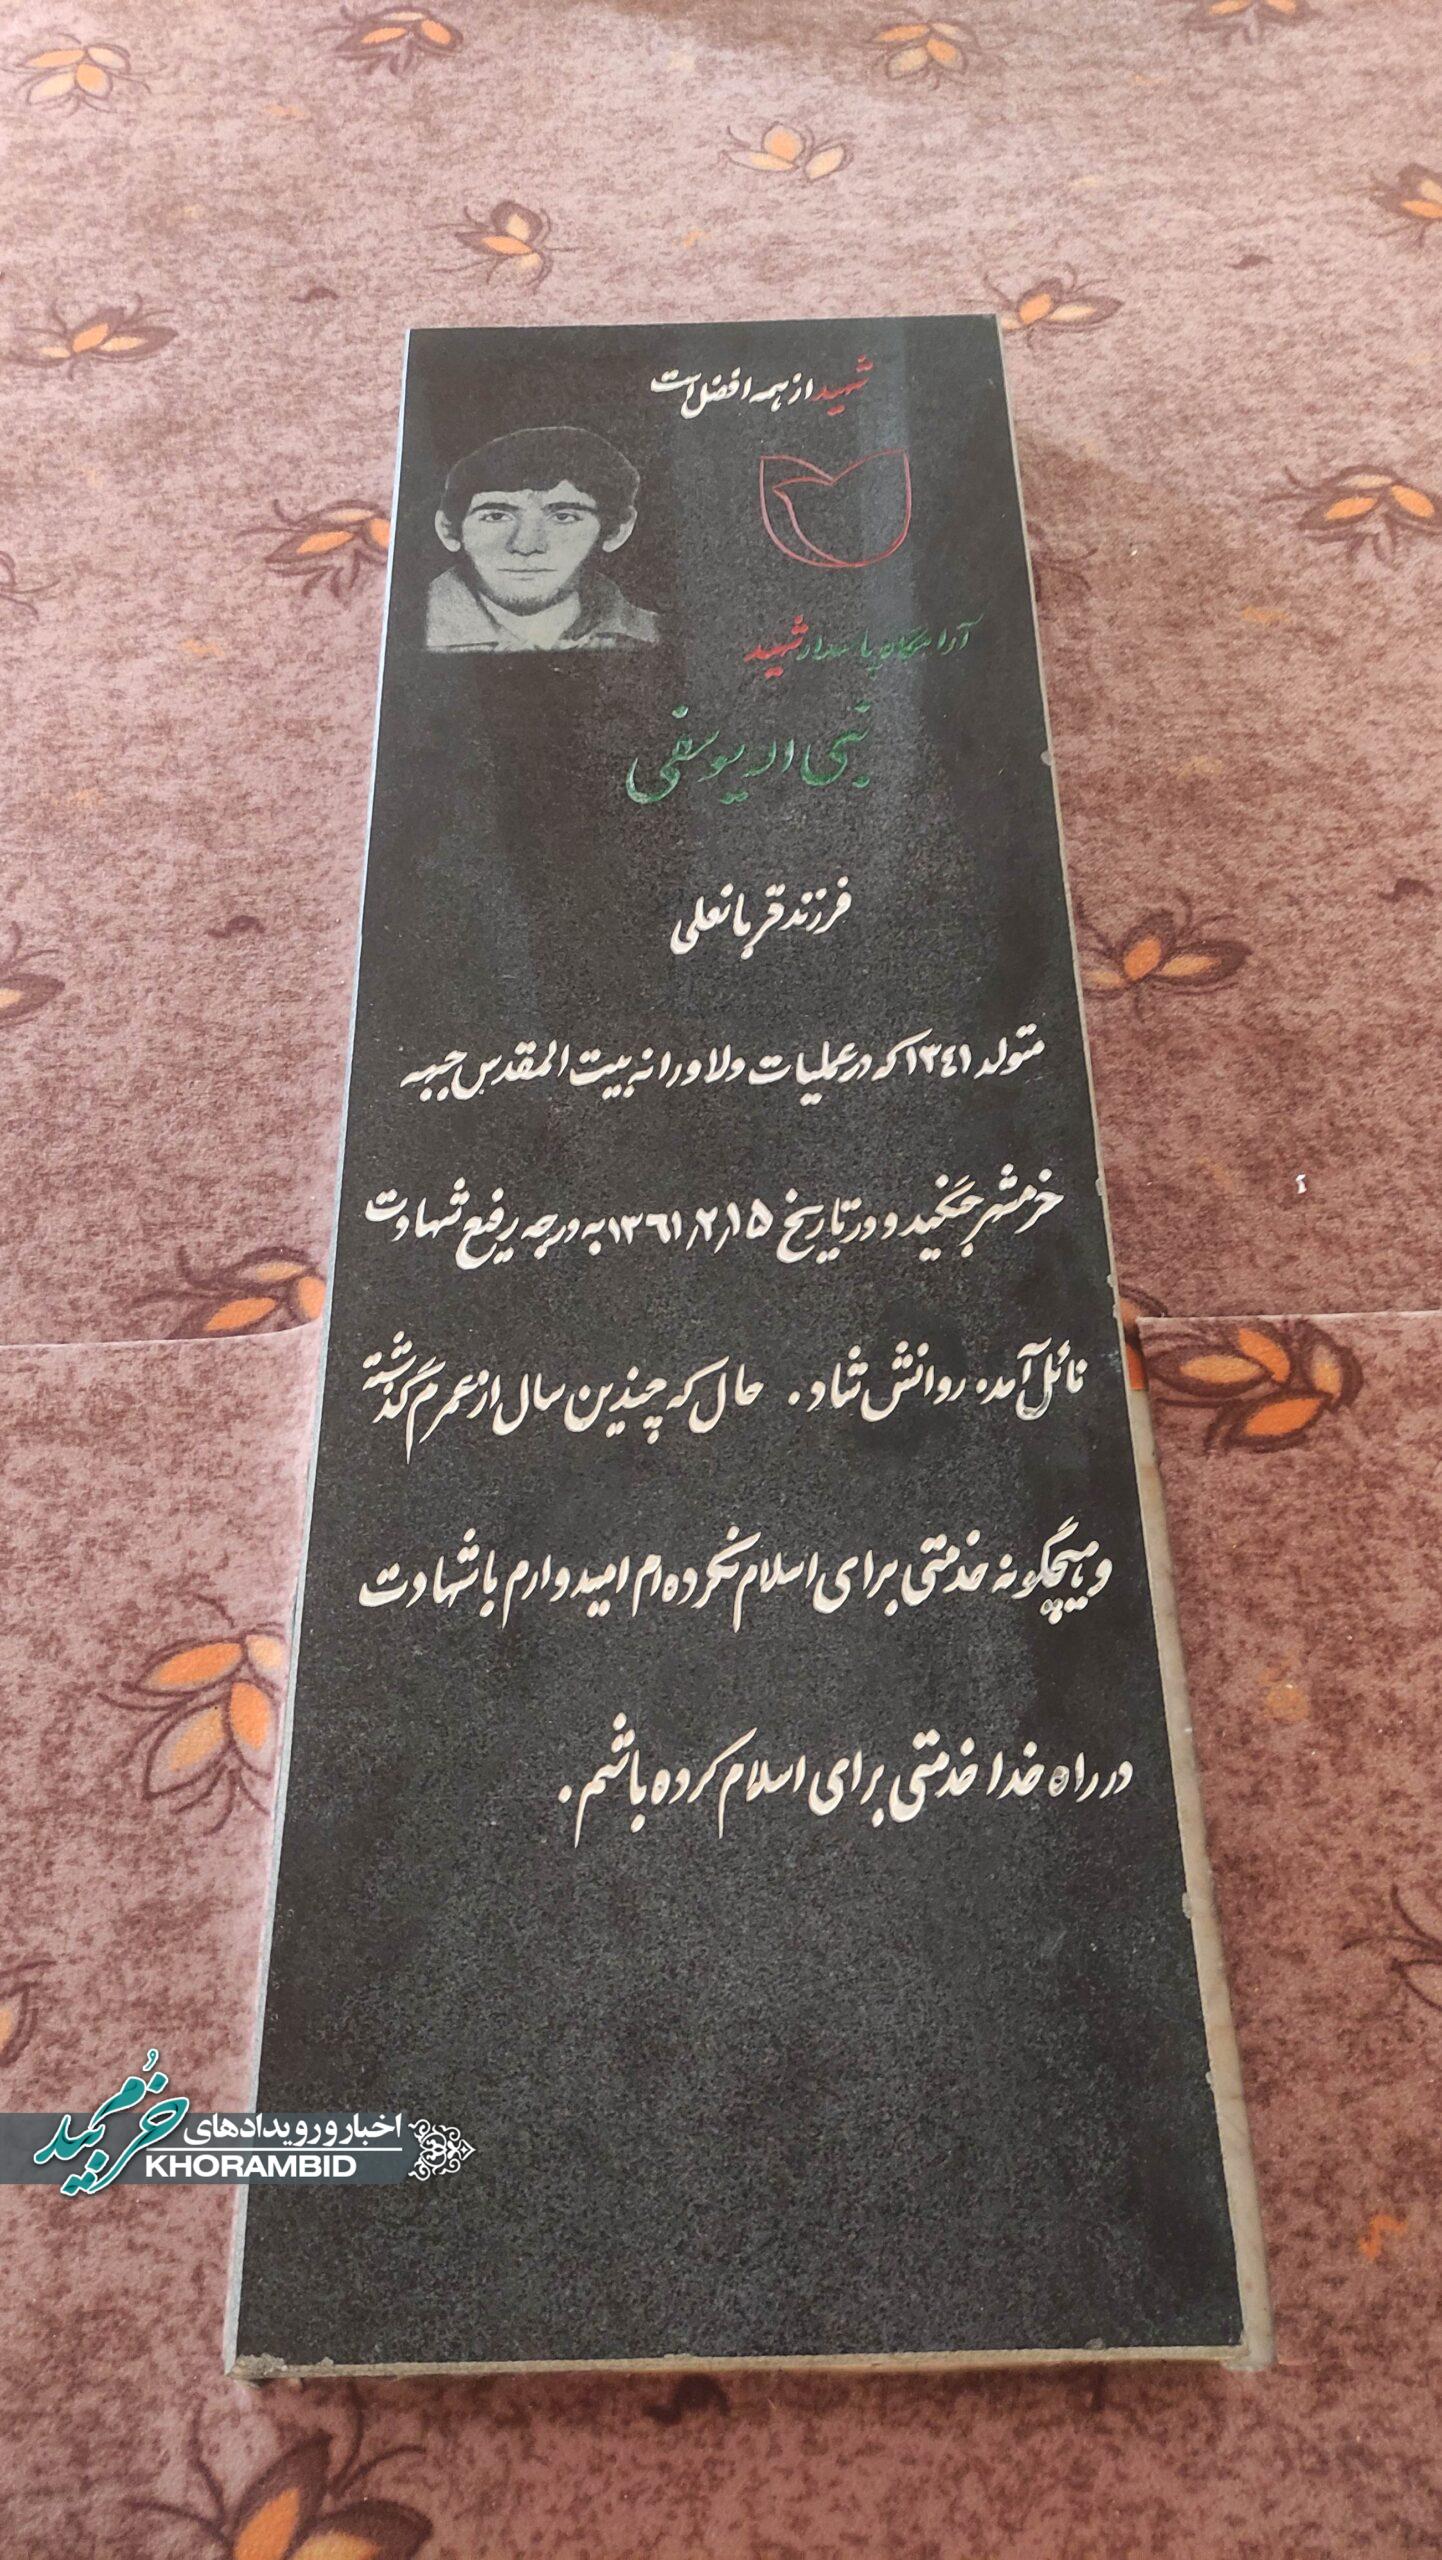 شهید از همه افضل است
آرامگاه پاسدار شهید
نبی اله یوسفی
فرزند قربانعلی
متولد ۱۳۴۱ که در عملیات دلاورانه بیت المقدس جبهه
خرمشهر جنگید و در تاریخ ۱۳۶۱/۲/۱۵ به درجه رفیع شهادت
نائل آمد. روانش شاد. حال که چندین سال از عمرم گذشته
و هیچگونه خدمتی برای اسلام نکرده ام امیدوارم با شهادت
در راه خدا خدمتی برای اسلام کرده باشم.
اخبار و رویدادهای
خرمبید
KHORAMBID